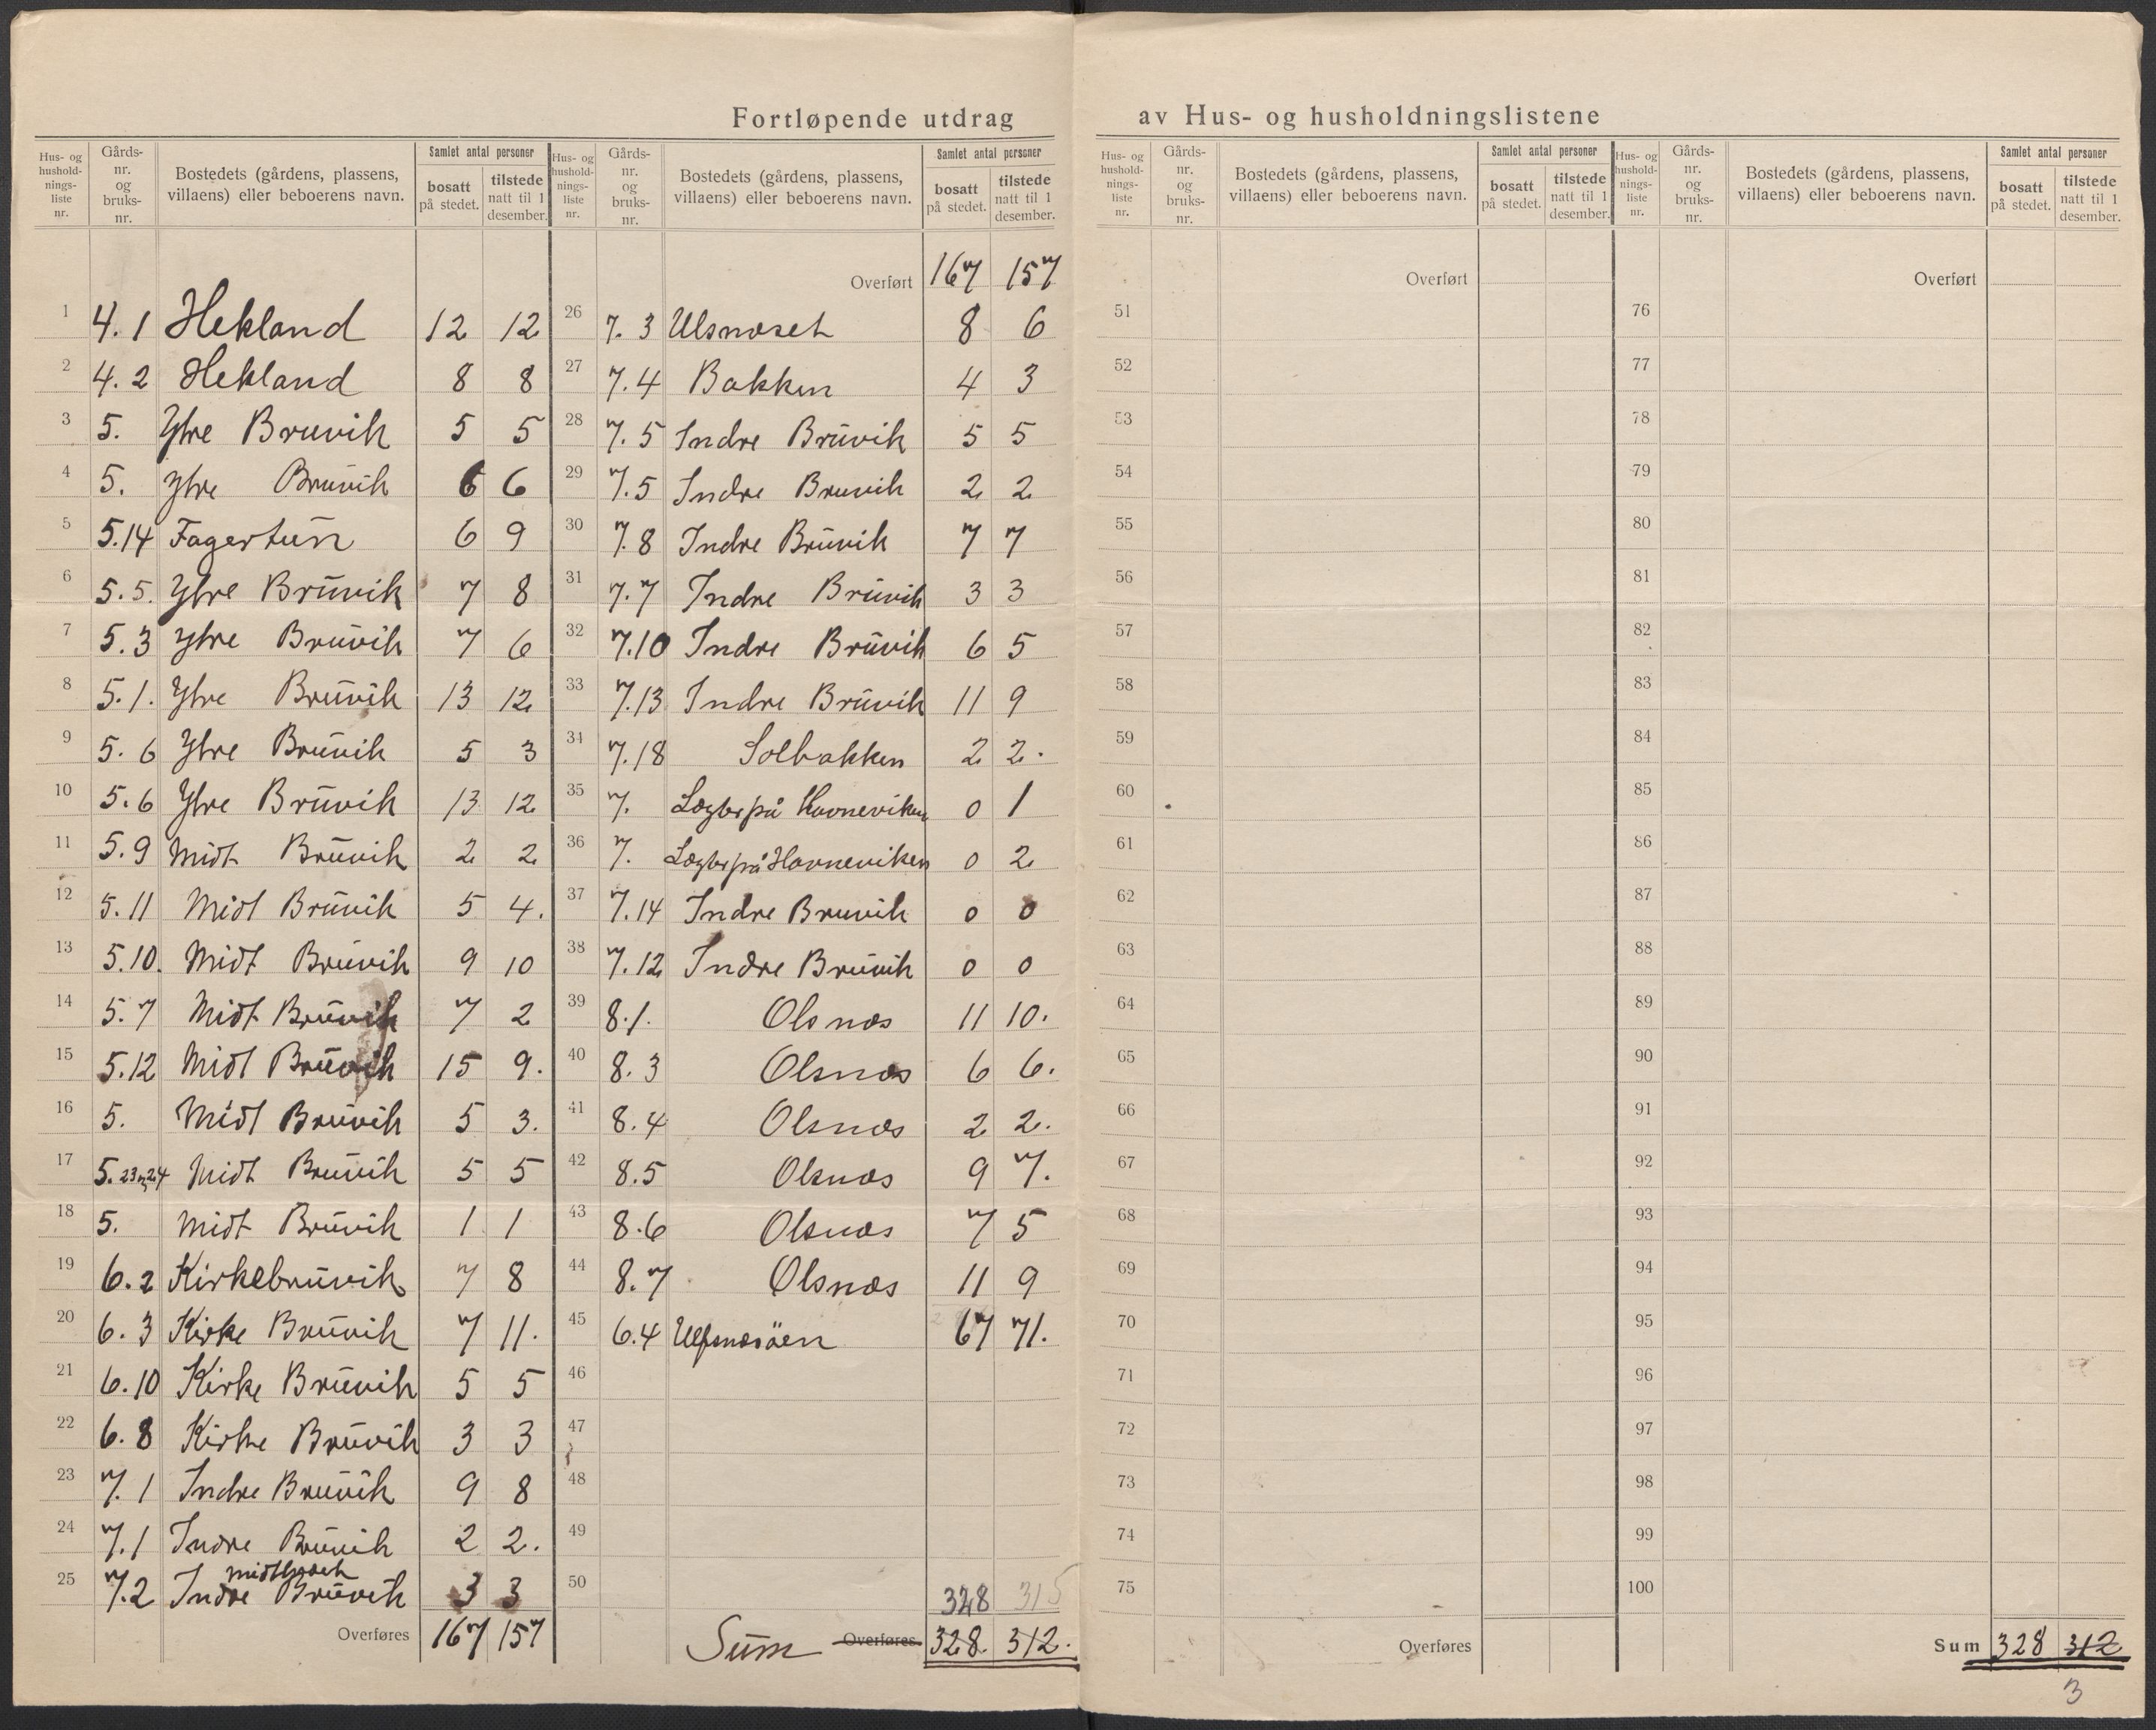 Fortløpende utdrag av Hus- og husholdningslistene
Hus- og hushold-nings-liste nr. Gårds-nr. og bruks-nr. Bostedets (gårdens, plassens, villaens) eller beboerens navn. Samlet antal personer bosatt på stedet. tilstede natt til 1 desember.
1 4. 1 Hekland 12 12
2 4. 2 Hekland 8 8
3 5. Ytre Bruvik 5 5
4 5. Ytre Bruvik 6 6
5 5.14 Fagertun 6 9
6 5.5. Ytre Bruvik 7 8
7 5.3 Ytre Bruvik 7 6
8 5.1. Ytre Bruvik 13 12
9 5.6 Ytre Bruvik 5 3
10 5.6 Ytre Bruvik 13 12
11 5.9 Midt Bruvik 2 2
12 5.11 Midt Bruvik 5 4.
13 5.10. Midt Bruvik 9 10
14 5.7 Midt Bruvik 7 2
15 5.12 Midt Bruvik 15 9.
16 5. Midt Bruvik 5 3.
17 5. 23 24 Midt Bruvik 5 5
18 5. Midt Bruvik 1 1
19 6.2 Kirkebruvik 7 8
20 6.3 Kirke Bruvik 7 11.
21 6.10 Kirke Bruvik 5 5
22 6.8 Kirke Bruvik 3 3
23 7.1 Indre Bruvik 9 8
24 7.1 Indre Bruvik 2 2.
25 7.2 Indre Bruvik 3 3
Overføres 167 157
Hus- og hushold-nings-liste nr. Gårds-nr. og bruks-nr. Bostedets (gårdens, plassens, villaens) eller beboerens navn. Samlet antal personer bosatt på stedet. tilstede natt til 1 desember.
Overført 167 157
26 7.3 Ulsnæset 8 6
27 7.4 Bakken 4 3
28 7.5 Indre Bruvik 5 5
29 7.5 Indre Bruvik 2 2
30 7.8 Indre Bruvik 7 7
31 7.7 Indre Bruvik 3 3
32 7.10 Indre Bruvik 6 5
33 7.13 Indre Bruvik 11 9
34 7.18 Solbakken 2 2.
35 7. på Havneviken 0 1
36 7. på Havneviken 0 2
37 7.14 Indre Bruvik 0 0
38 7.12 Indre Bruvik 0 0
39 8.1. Olsnæs 11 10.
40 8.3 Olsnæs 6 6.
41 8.4 Olsnæs 2 2.
42 8.5 Olsnæs 9 7.
43 8.6 Olsnæs 7 5
44 8.7 Olsnæs 11 9
45 6.4 Ulfsnesöen 67 71.
46
47
48
49
50 328 315
Sum Overføres 328. 312.
Hus- og hushold-nings-liste nr. Gårds-nr. og bruks-nr. Bostedets (gårdens, plassens, villaens) eller beboerens navn. Samlet antal personer bosatt på stedet. tilstede natt til 1 desember.
Overført
51
52
53
54
55
56
57
58
59
60
61
62
63
64
65
66
67
68
69
70
71
72
73
74
75
Overføres
Hus- og hushold-nings-liste nr. Gårds-nr. og bruks-nr. Bostedets (gårdens, plassens, villaens) eller beboerens navn. Samlet antal personer bosatt på stedet. tilstede natt til 1 desember.
Overført
76
77
78
79
80
81
82
83
84
85
86
87
88
89
90
91
92
93
94
95
96
97
98
99
100
Sum 328 312
3